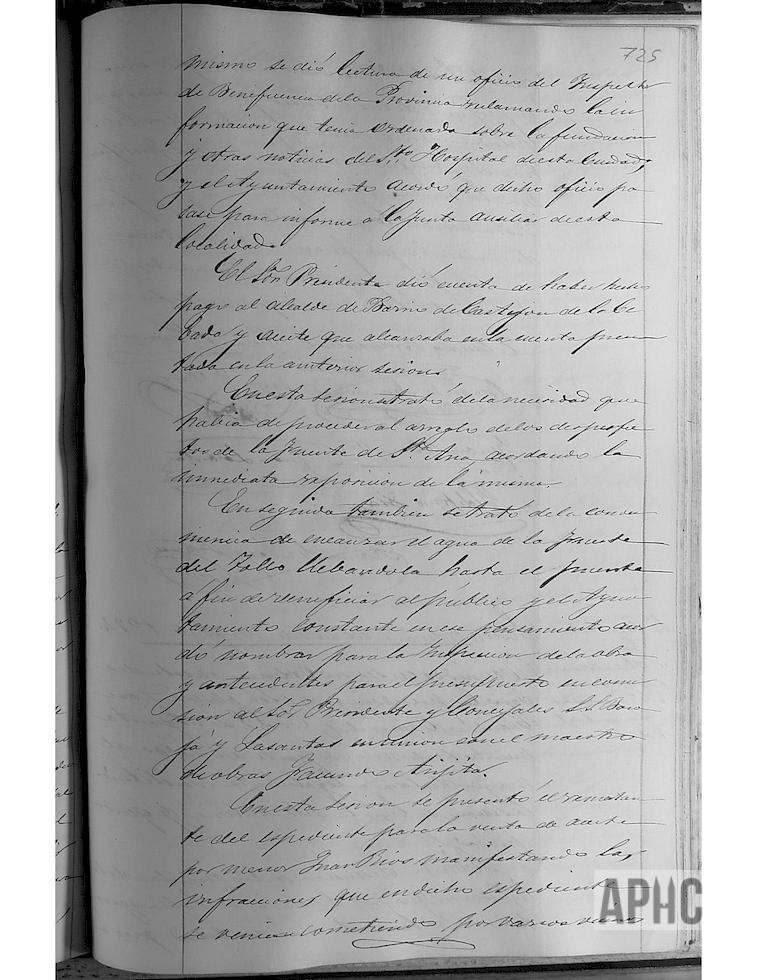 725
mismo se dió lectura de un oficio del Inspector
de Beneficencia dela Provincia reclamando la in
formacion que tenia ordenada sobre la fundacion
y otras noticias del Sto Hospital de esta Ciudad,
y el Ayuntamiento acordó que dicho oficio pa
sase para informe a la Junta auxiliar de esta
localidad
El Sor Presidente dió cuenta de haber hecho
pago al alcalde de Barrio de Castejon de la Ce
bada y aceite que alcanzaba en la cuenta presen
tada en la anterior sesion.
En esta sesion se trató dela necesidad que
habia de proceder al arreglo delos desperfec
tos de la fuente de Sta Ana acordando la
inmediata reposicion de la misma.
En seguida tambien se trató de la conve
niencia de encauzar el agua de la fuente
del llebandola hasta el puente
a fin de beneficiar al público y el Ayun
tamiento constante en ese pensamiento acor
dó nombrar para la Inspeccion de la obra
y antecedentes para el presupuesto en comi
sion al Sor Presidente y Concejales S.S.
y Lasantas en union con el maestro
de obras Facundo
En esta sesion se presentó el rematan
te del espediente para la venta de aceite
por menor Juan Rios manifestando las
infracciones que en dicho espediente
se venian cometiendo por varios vecinos
APHC